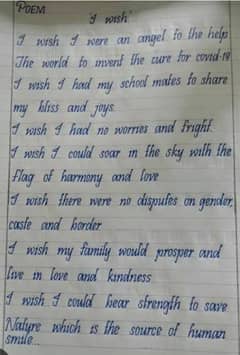 POEM
'I wish'
I wish I were an angel to the help
The world to invent the cure for covid-19
I wish I had my school mates to share
my bliss and joys.
I wish I had no worries and fright.
I wish I could soar in the sky with the
flag of harmony and love
I wish there were no disputes on gender,
caste and border
I wish my family would prosper and
live in love and kindness
I wish I could hear strength to save
Nature which is the source of human
smile...